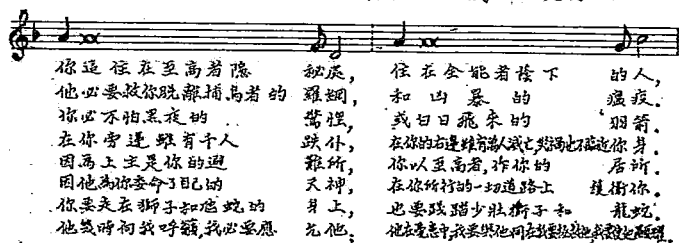 你這住在至高者隱 秘處, 住在全能者蔭下 的人,
他必要救你脫離捕鳥者的 羅網, 和凶暴的 瘟疫.
你必不怕黑夜的 驚惶, 或白日飛來的 羽箭.
在你旁邊雖有千人 跌仆, 在你的右邊雖有萬人 也不臨近你 身.
因為上主是你的避 難所, 你以至高者,作你的 居所.
因他為你委命了自己的 天神, 在你所行的一切道路上 護衛你.
你要走在獅子和虺蛇的 身上, 也要踐踏少壯獅子和 龍蛇.
他幾時向我呼籲,我必要應 允他; 他在憂患中,我要與他同在